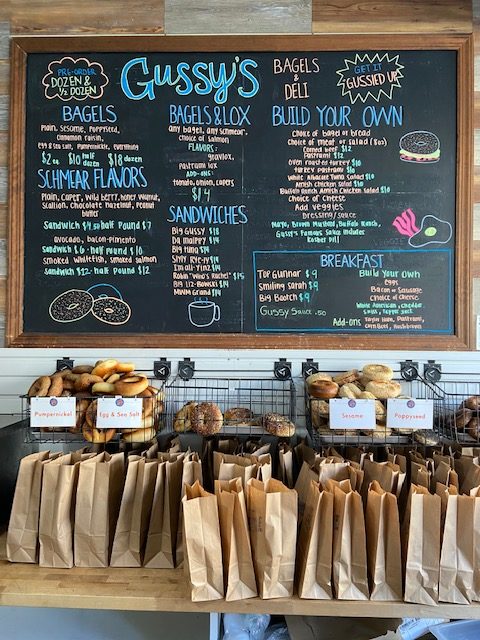 PRE-ORDER
DOZEN &
½ DOZEN
GUSSY'S
BAGELS
& DELI
GET IT
GUSSIED UP
BAGELS
Plain, Sesame, Poppyseed,
Cinnamon raisin,
Egg & Salt, Pumpernickle, everything
$2 ea $10 half dozen $18 dozen
SCHMEAR FLAVORS
Plain, Caper, Wild berry, honey Walnut,
Scallion, Chocolate Hazelnut, Peanut
butter
Sandwich $4.50 half Pound $7
avocado, bacon-Pimento
Sandwich $6 half pound $10
Smoked Whitefish, Smoked Salmon
Sandwich $12 half Pound $12
BAGELS & LOX
any bagel, any schmear,
choice of salmon
FLAVORS:
gravlox,
Pastrami lox
ADD-ONS:
tomato, onion, capers
$14
SANDWICHES
Big Gussy $15
Da Malppy $14
Big Tuna $14
Robin "Who's Rachel" $15
Big Liz-Bowski $14
MWM Grand $14
BUILD YOUR OWN
Choice of Bagel or bread
Choice of Meat or Salad
Corned Beef $12
Pastrami $12
Oven roasted turkey $10
turkey Pastrami $10
White Albacore Tuna Salad $10
Amish Chicken Salad $10
Buffalo Ranch Amish Chicken Salad $10
Choice of Cheese
Add Veggies
Dressing/Sauce
Mayo, Brown Mustard, Buffalo Ranch,
Gussy's Famous Sauce includes
Kosher Dill
BREAKFAST
Top Gunnar $9
Smiling Sarah $9
Big Bootch $9
Gussy Sauce .50
Build Your Own
eggs
Bacon or Sausage
Choice of Cheese
White American, Cheddar,
Swiss, Pepper Jack
Add-ons
Taylor Ham, Pastrami,
Corn Beef, Hashbrown
Pumpernickel
Egg & Salt
Sesame
Poppyseed